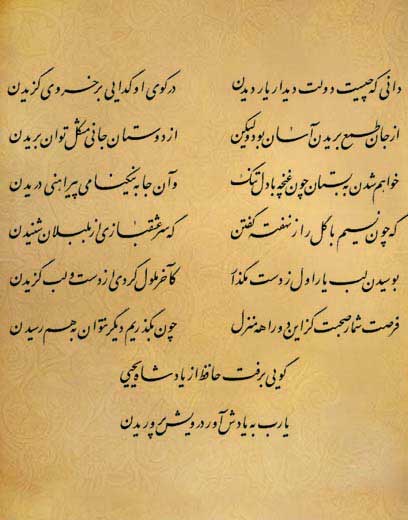 دانی که چیست دولت دیدار یار دیدن در کوی او گدایی بر خسروی گزیدن
از جان طمع بریدن آسان بود ولیکن از دوستان جانی مشکل توان بریدن
خواهم شدن به بستان چون غنچه با دل تنگ وآن جا به نیکنامی پیراهنی دریدن
که چون نسیم با گل راز نهفته گفتن که سر عشقبازی از بلبلان شنیدن
بوسیدن لب یار اول ز دست مگذار کآخر ملول گردی از دست و لب گزیدن
فرصت شمار صحبت کز این دوراهه منزل چون بگذریم دیگر نتوان به هم رسیدن
گویی برفت حافظ از یاد شاه یحیی
یا رب به یادش آور درویش پروریدن